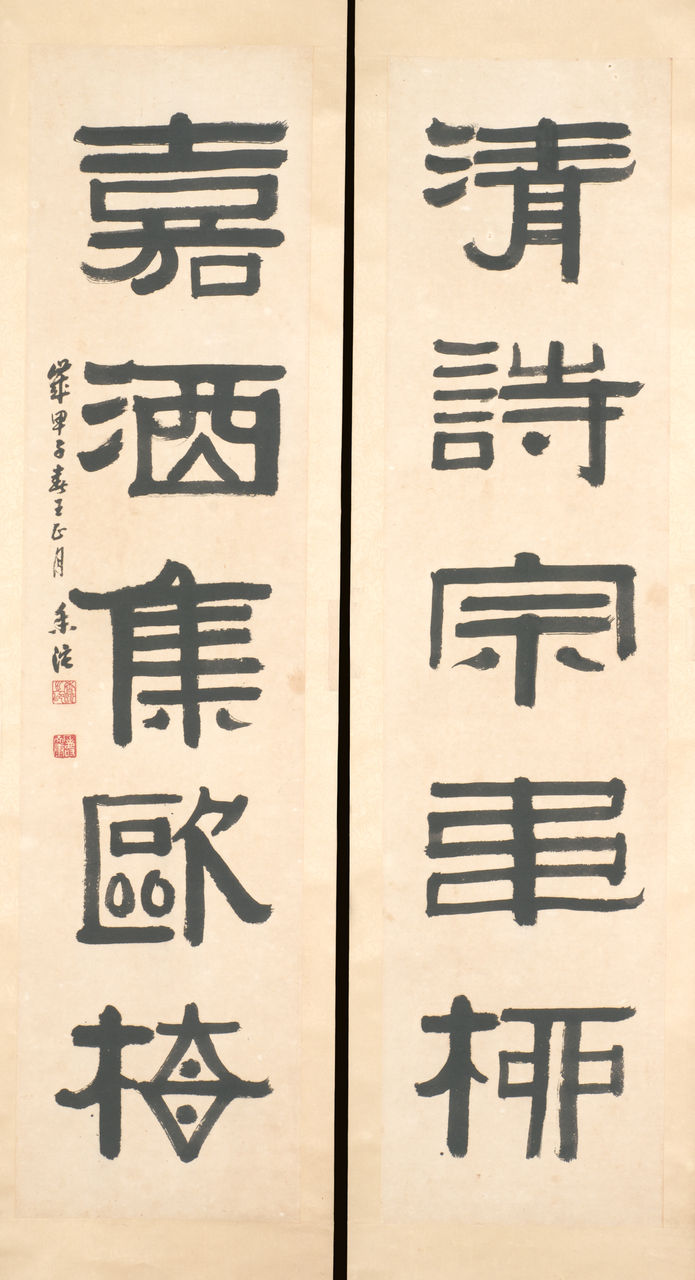 清詩宗韋柳
嘉酒集歐梅
歲甲子春王正月 秉綬